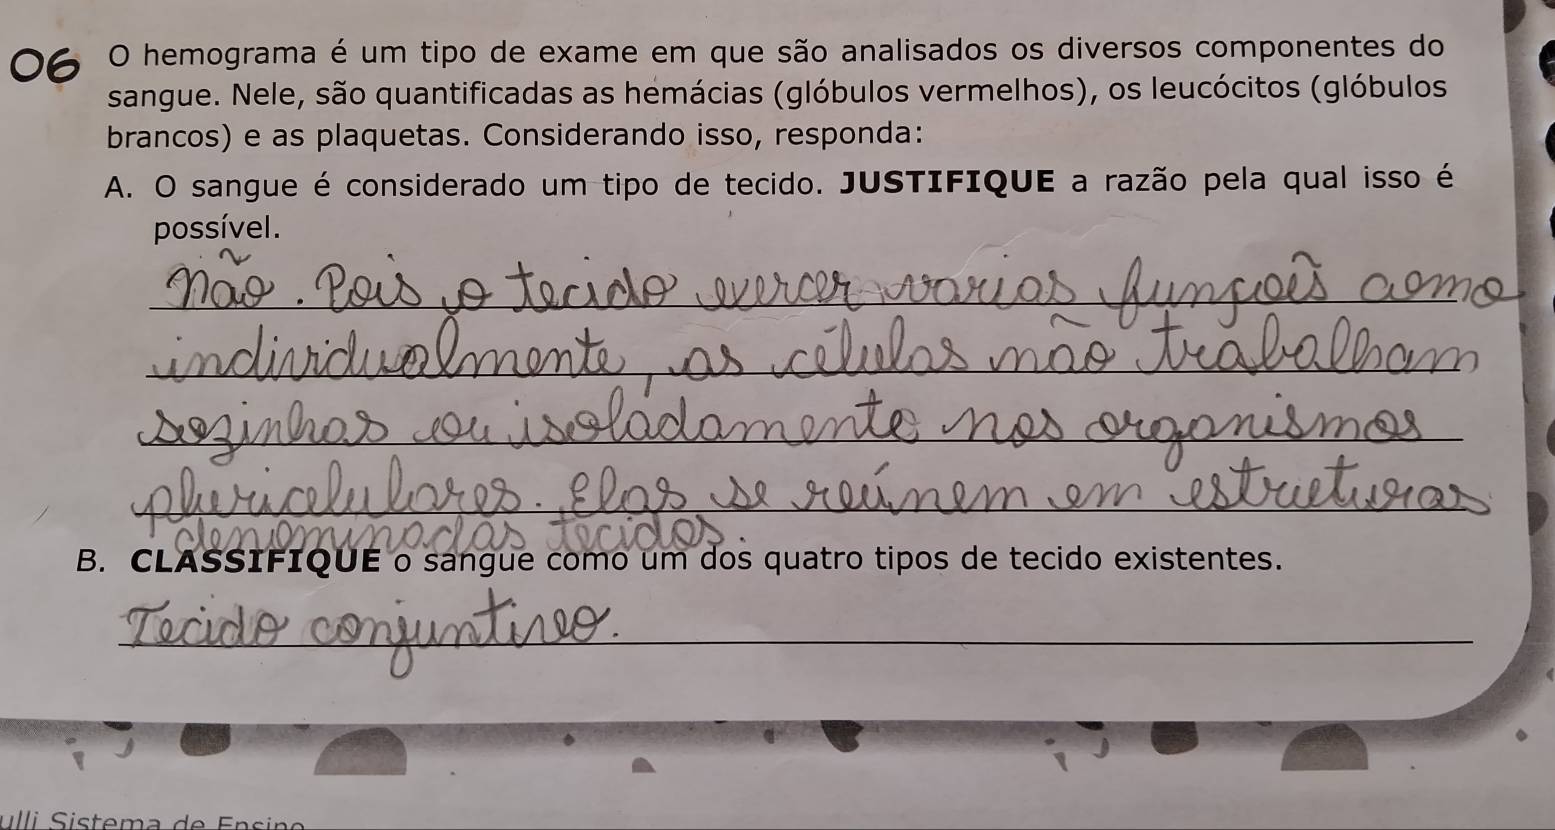 06 O hemograma é um tipo de exame em que são analisados os diversos componentes do
sangue. Nele, são quantificadas as hemácias (glóbulos vermelhos), os leucócitos (glóbulos
brancos) e as plaquetas. Considerando isso, responda:
A. O sangue é considerado um tipo de tecido. JUSTIFIQUE a razão pela qual isso é
possível.
não. Pois o tecido exercer varias funçoês como
individualmente, as células não trabalham
sozinhas ou isoladamente nos organismos
pluricelulares. Elas se reúnem em estruturas
denominadas tecidos.
B. CLASSIFIQUE o sangue como um dos quatro tipos de tecido existentes.
Tecido conjuntivo.
ulli Sistema de Ensino